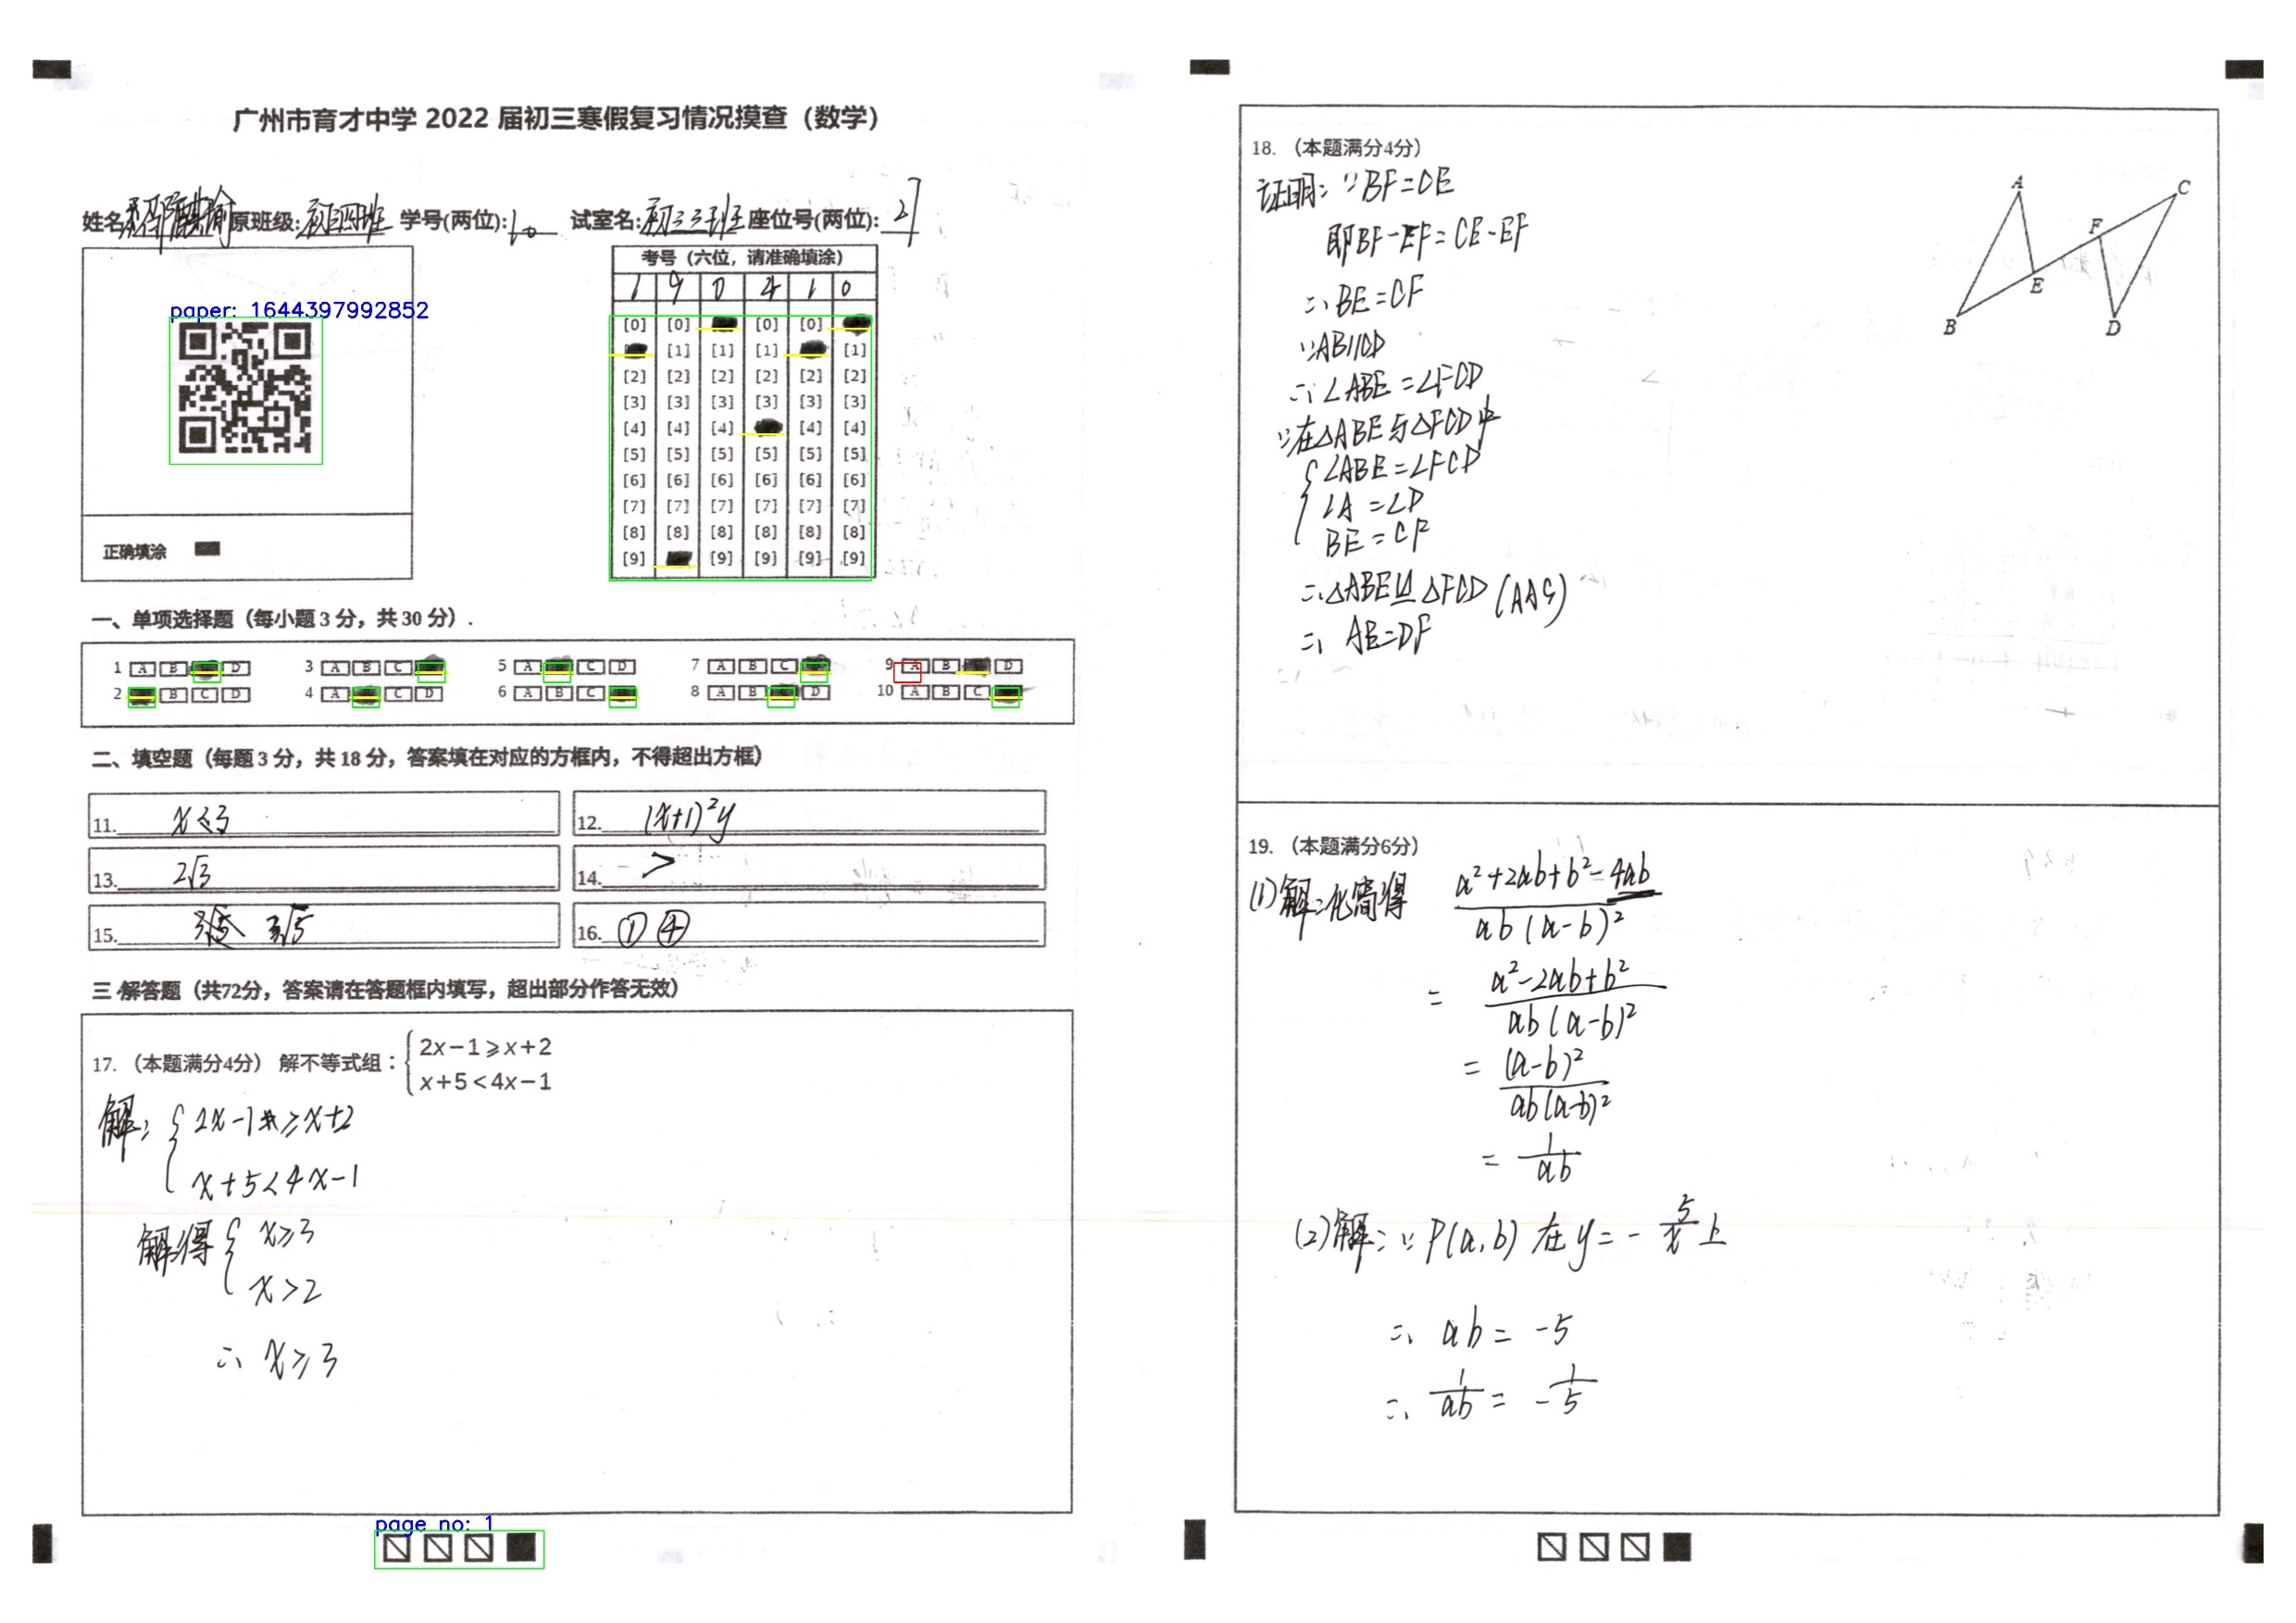 广州市育才中学 2022 届初三寒假复习情况摸查（数学）
姓名 原班级: 学号(两位): 10 试室名: 初三3班 座位号(两位): 21
考号（六位，请准确填涂）
1 9 0 4 1 0
paper: 1644397992852
[0] [0] [0] [0]
[1] [1] [1] [1]
[2] [2] [2] [2] [2] [2]
[3] [3] [3] [3] [3] [3]
[4] [4] [4] [4] [4]
[5] [5] [5] [5] [5] [5]
[6] [6] [6] [6] [6] [6]
[7] [7] [7] [7] [7] [7]
[8] [8] [8] [8] [8] [8]
[9] [9] [9] [9] [9]
正确填涂
一、单项选择题（每小题 3 分，共 30 分）.
1 A B D 3 A B C 5 A C D 7 A B C 9 A B D
2 B C D 4 A C D 6 A B C 8 A B D 10 A B C
二、填空题（每题 3 分，共 18 分，答案填在对应的方框内，不得超出方框）
11. x≤3
12. (x+1)²y
13. 2√3
14. >
15. 3√5
16. ①④
三 解答题（共72分，答案请在答题框内填写，超出部分作答无效）
17. （本题满分4分） 解不等式组：{2x−1⩾x+2
x+5<4x−1
解: {2x-1≥x+2
x+5<4x-1
解得{x≥3
x>2
∴ x≥3
page no: 1
18. （本题满分4分）
A C F E B D
证明: ∵BF=CE
即BF-EF=CE-EF
∴BE=CF
∵AB//CD
∴∠ABE=∠FCD
∵在△ABE与△FCD中
{∠ABE=∠FCD
∠A=∠D
BE=CF
∴△ABE≌△FCD (AAS)
∴ AE=DF
19. （本题满分6分）
(1)解:化简得 (a²+2ab+b²-4ab)/(ab(a-b)²)
= (a²-2ab+b²)/(ab(a-b)²)
= (a-b)²/(ab(a-b)²)
= 1/(ab)
(2)解: ∵P(a,b) 在y=-5/x上
∴ ab=-5
∴ 1/(ab)=-1/5